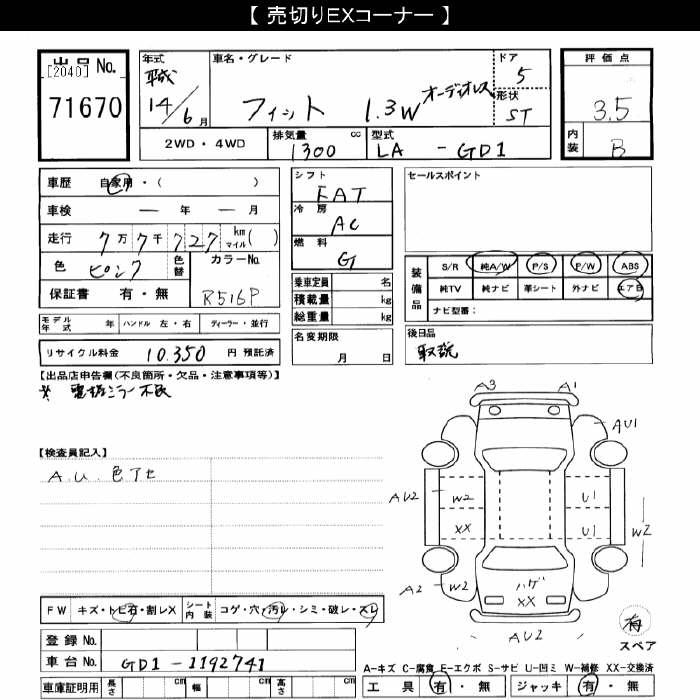 【 売切りEXコーナー 】
出品 No.
[2040]
71670
年式
車名・グレード
ドア
5
評価点
14/6月
フィット 1.3W オーディオレス
形状
ST
3.5
2WD・4WD
排気量 cc
1300
型式
LA - GD1
内装
B
車歴 自家用・( )
シフト
FAT
セールスポイント
車検 ー 年 ー 月
冷房
AC
走行 7万7千727 km マイル( )
燃料
G
色 ピンク
色替
カラーNo.
R516P
装備品
S/R 純A/W P/S P/W ABS
純TV 純ナビ 革シート 外ナビ エアB
ナビ型番:
保証書 有・無
乗車定員 名
積載量 kg
総重量 kg
モデル年式 年 ハンドル 左・右 ディーラー・並行
名変期限
月 日
後日品
取説
リサイクル料金 10,350 円 預託済
【出品店申告欄(不良箇所・欠品・注意事項等)】
※ 電格ミラー不良
A3 A1
AU1
【検査員記入】
A.U. 色アセ
AU2 W2 U1
XX U1 W2
A2 W2
ハゲ
XX
AU2
有
スペア
FW キズ・トビ石・割レX
シート内装 コゲ・穴・汚レ・シミ・破レ・スレ
登録 No.
車台 No. GD1-1192741
A-キズ C-腐食 E-エクボ S-サビ U-凹ミ W-補修 XX-交換済
車庫証明用 長さ cm 幅 cm 高さ cm
工具 有・無 ジャッキ 有・無